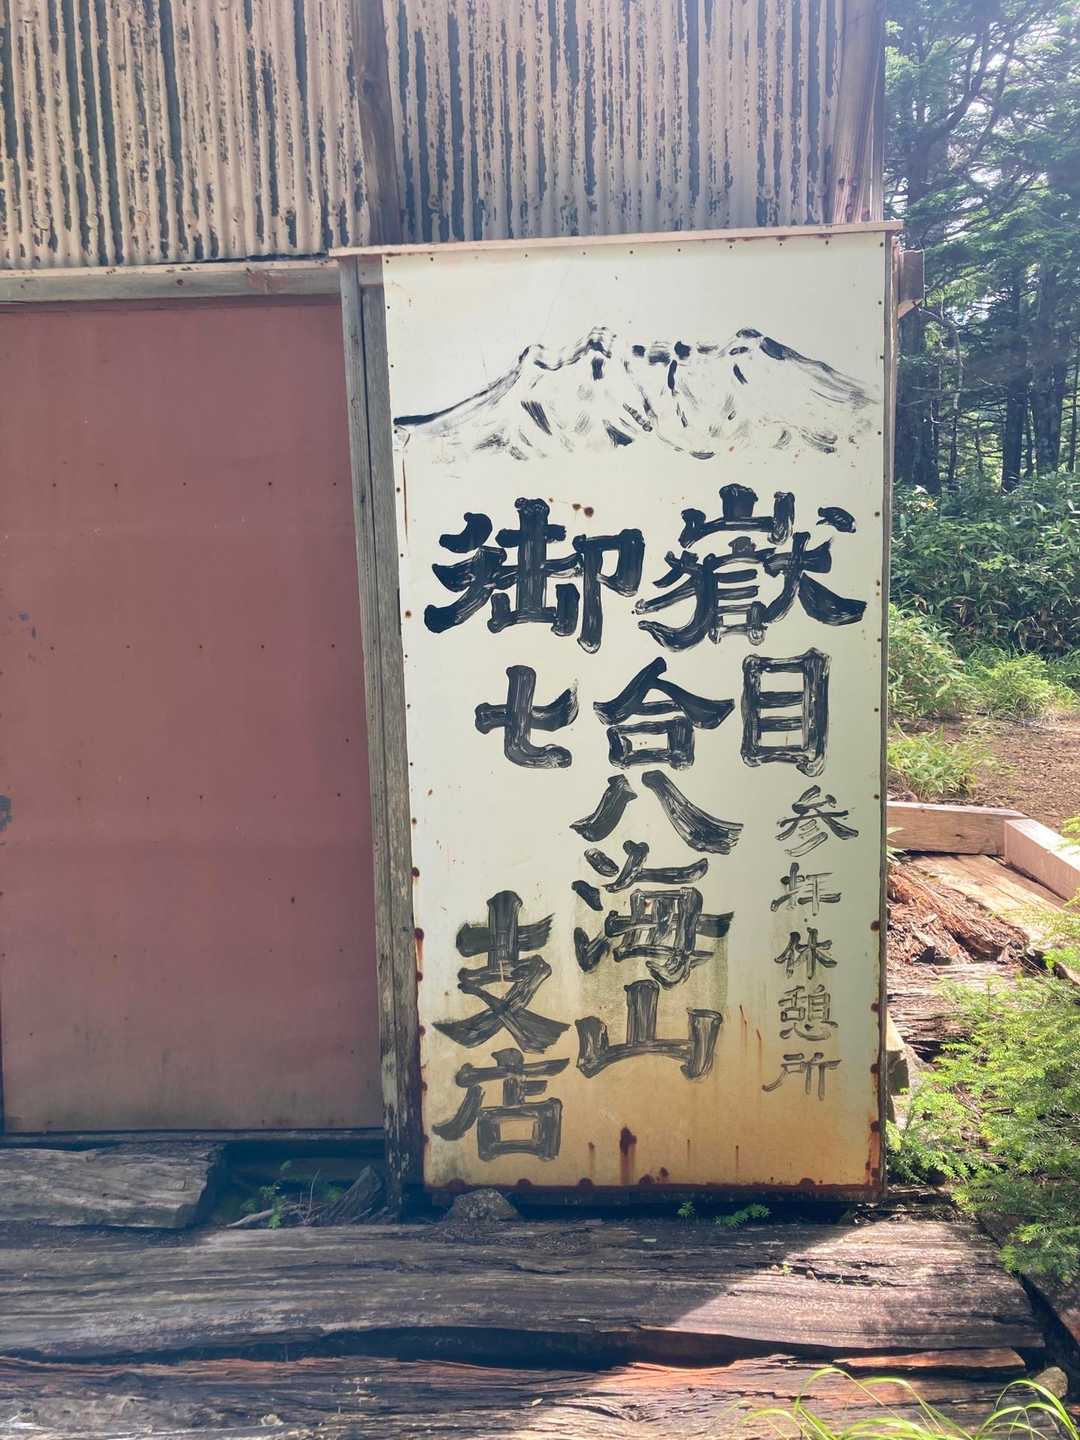 御嶽
七合目
八海山
支店
参拝休憩所